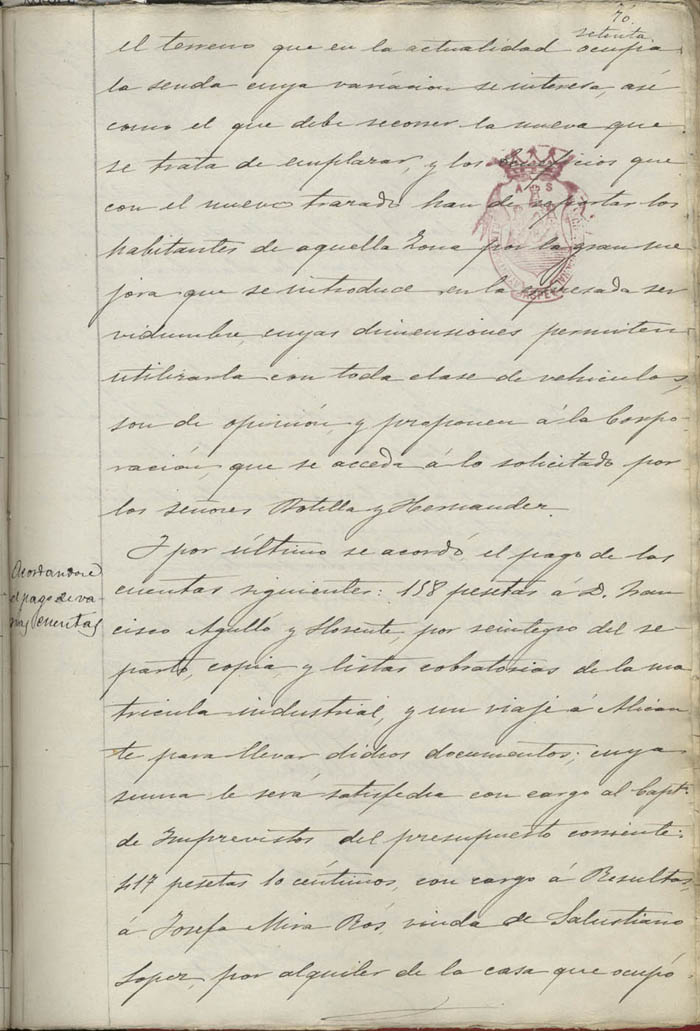 70.
setenta.
el terreno que en la actualidad ocupa
la senda cuya variacion se interesa, asi
como el que debe recorrer la nueva que
se trata de emplazar, y los beneficios que
con el nuevo trazado han de reportar los
habitantes de aquella zona por la gran me
jora que se introduce en la expresada ser
vidumbre, cuyas dimensiones permiten
utilizarla con toda clase de vehiculos,
son de opinión, y proponen á la Corpo-
ración, que se acceda á lo solicitado por
los señores Botella y Hernandez.
Acordandose
el pago de va-
rias cuentas
Y por último se acordó el pago de las
cuentas siguientes: 158 pesetas á D. Fran
cisco Agulló y Llorente, por reintegro del re
parto, copia, y listas cobratorias de la ma
tricula industrial, y un viaje á Alican
te para llevar dichos documentos; cuya
suma le será satisfecha con cargo al Capt.º
de Imprevistos del presupuesto corriente:
417 pesetas 10 céntimos, con cargo á Resultas,
á Josefa Mira Rós, viuda de Salustiano
Lopez, por alquiler de la casa que ocupó